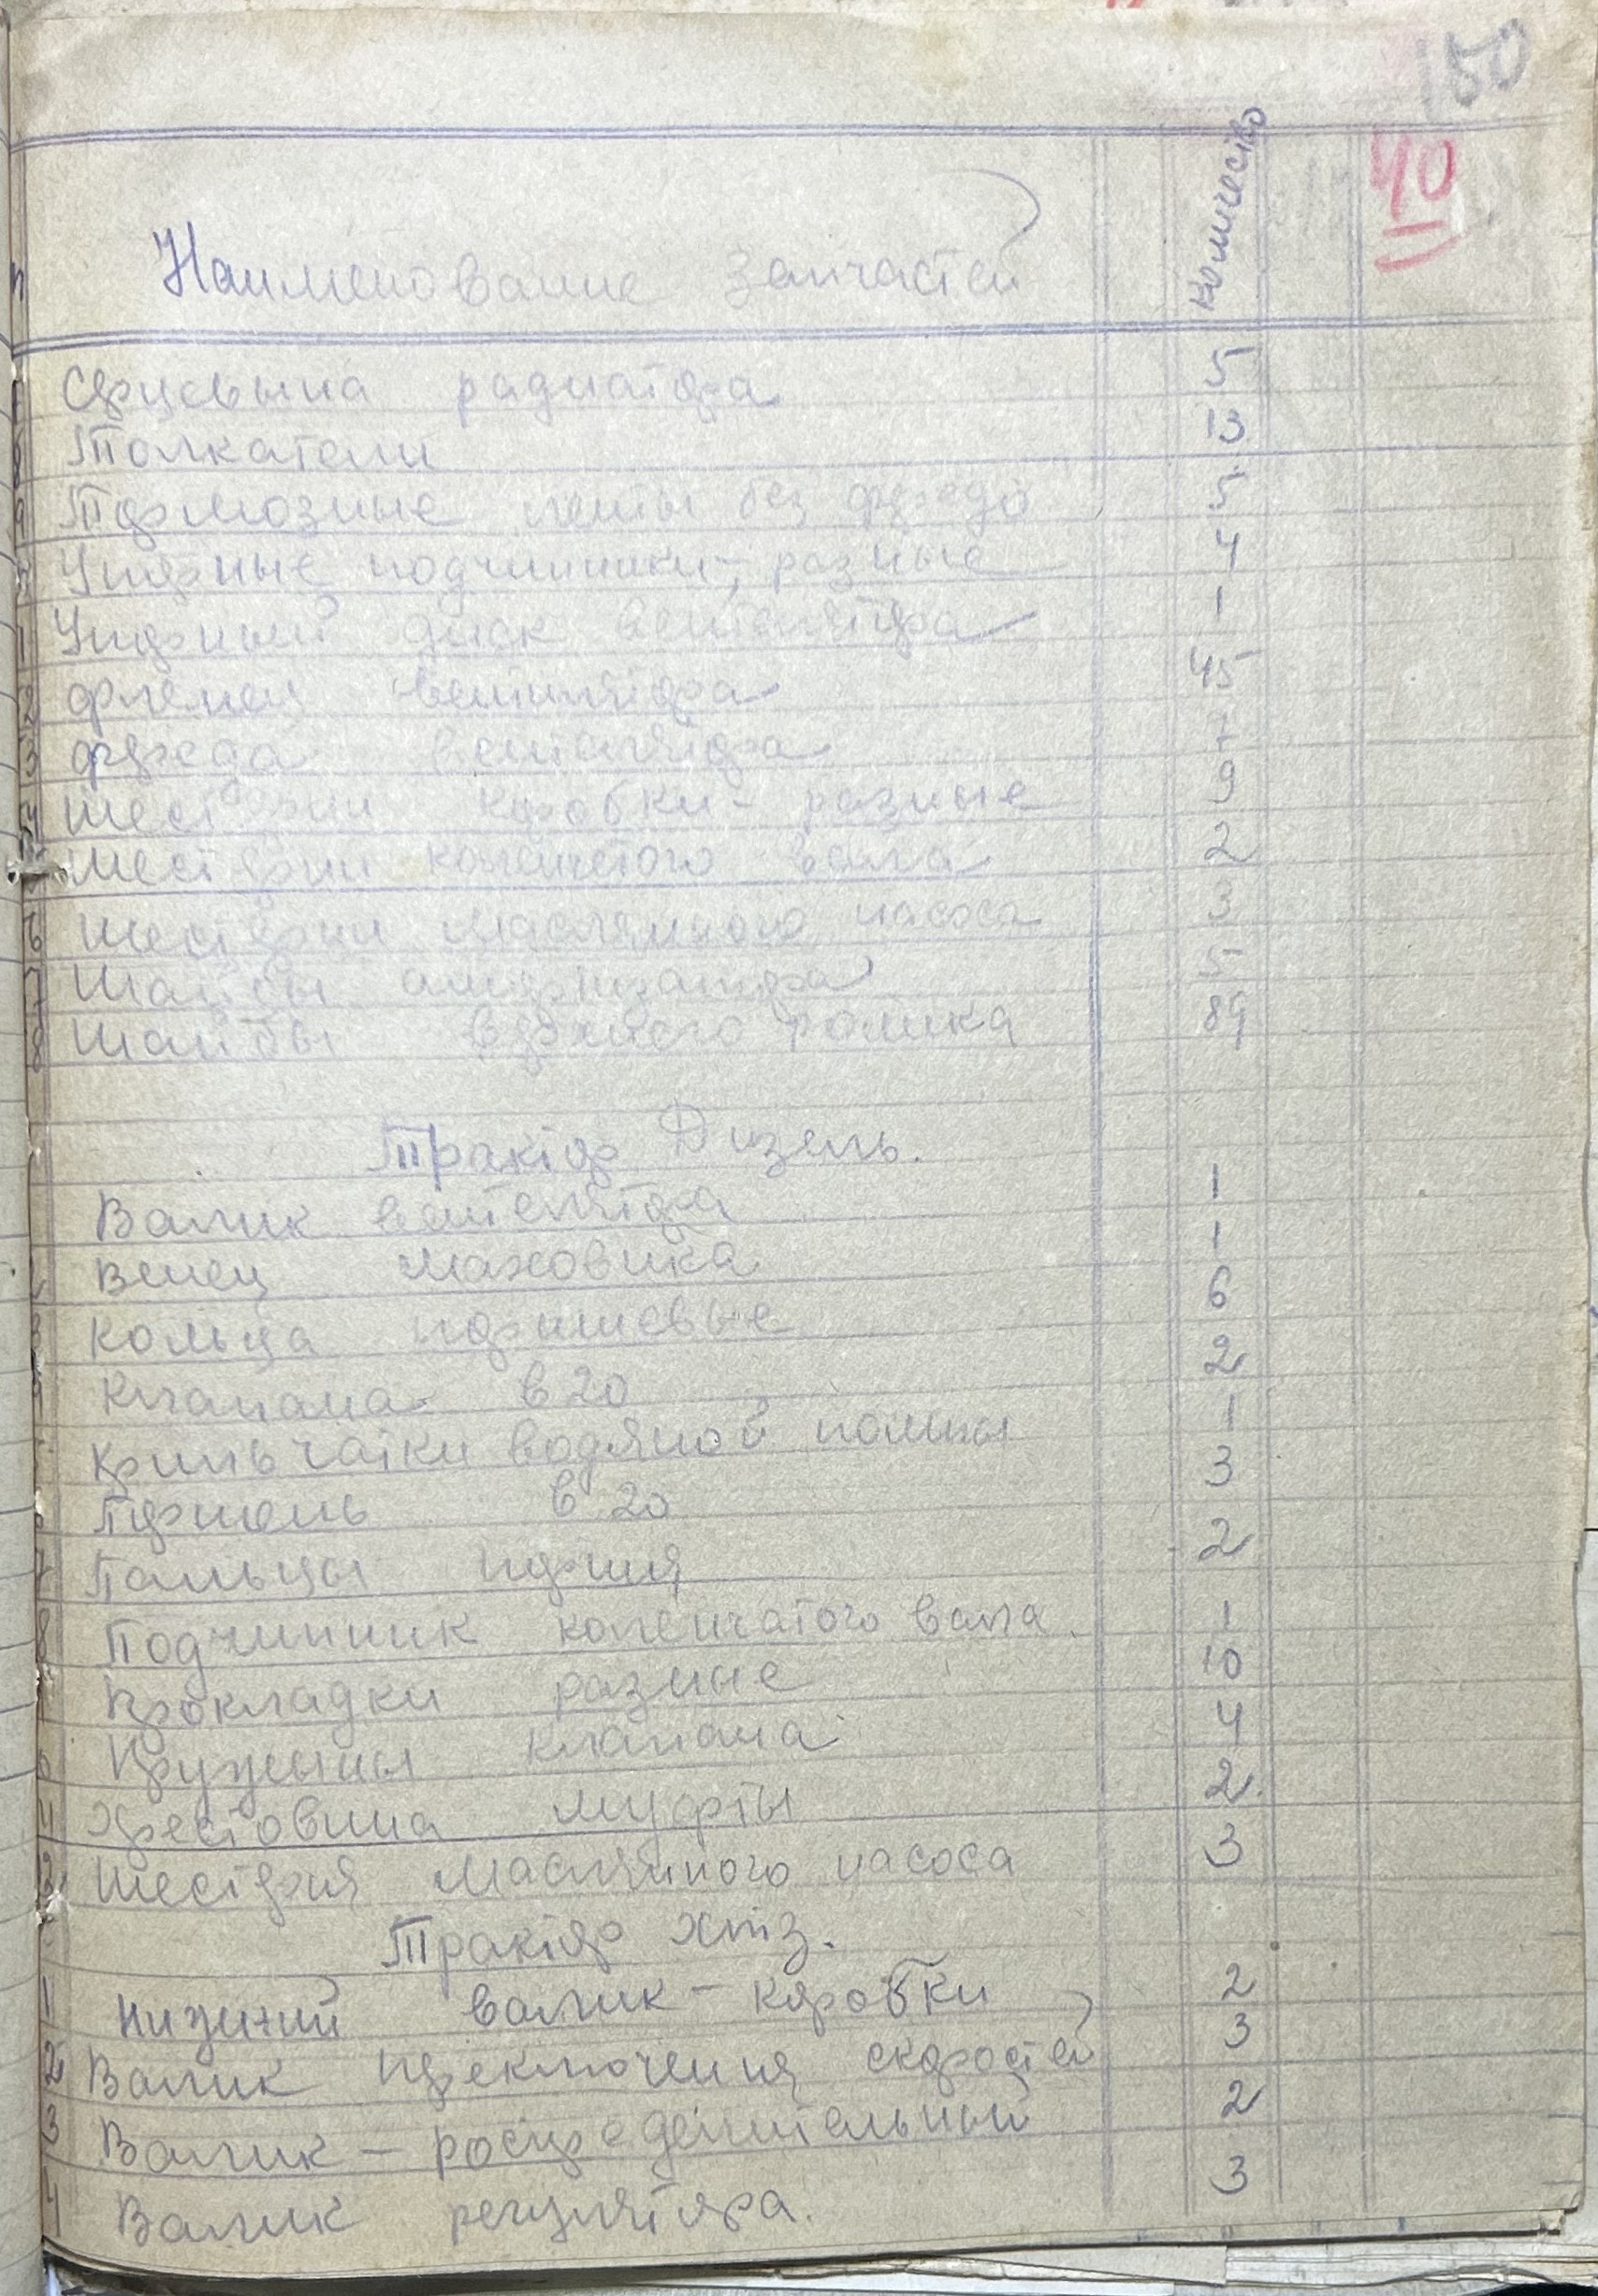 150
40
Наименование запчастей
Количество
Сердцевына радиатора 5
Толкатели 13
Тормозные ленты без феродо 5
Упорные подчипники, разные 4
Упорный диск вентелятора 1
фленец вентилятора 45
фередо вентилятора 7
шестерни коробки - разные 9
шестерни коленчетого вала 2
6 шестерни маслянного насоса 3
7 Шайбы амортизатора 5
8 Шайбы верхнего ролика 84
Трактор Дизель.
Валик вентелятора 1
Венец маховика 1
кольца поршневые 6
Клапана в 20 2
крыльчатки водяной помпы 1
Поршень в 20 3
7 Пальцы поршня 2
8 Подчипник коленчатого вала 1
прокладки разные 10
Пружыны клапана 4
11 Хрестовина муфты 2
12 шестерня маслянного насоса 3
Трактор хтз.
1 Нижний валик - коробки 2
2 Валик переключения скоростей 3
3 Валик - роспределительный 2
4 Валик регулятора. 3